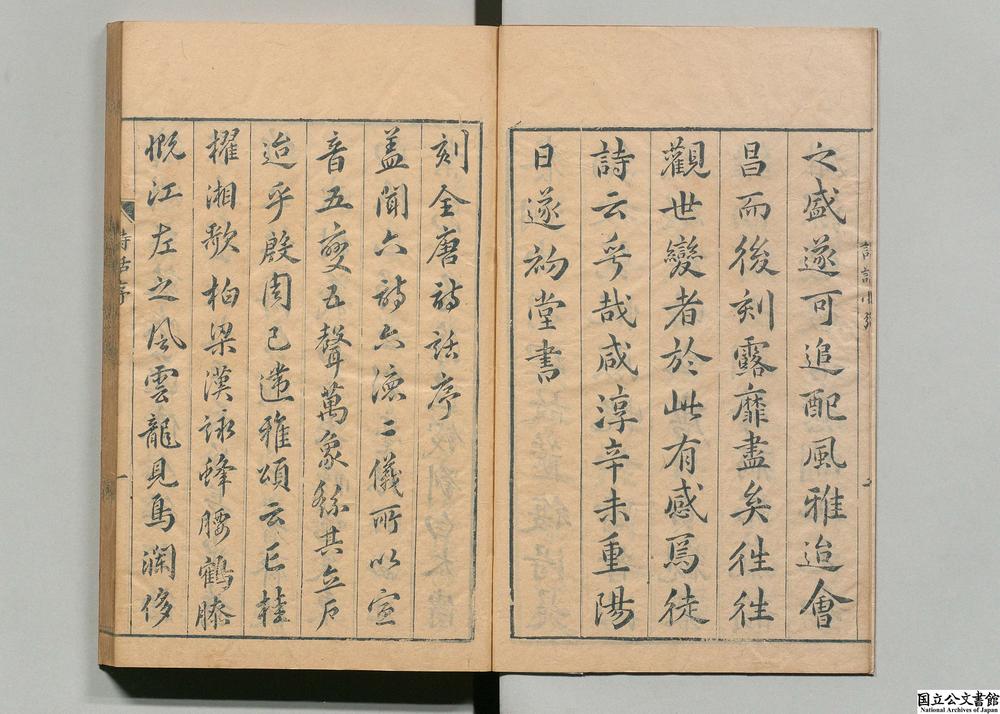 之盛遂可追配風雅迨會
昌而後刻露靡盡矣徃徃
觀世變者於此有感焉徒
詩云乎哉咸淳辛未重陽
日遂初堂書
刻全唐詩話序
盖聞六詩六德二儀所以宣
音五變五聲萬象繇其立
迨乎殷周已遠雅頌云亡桂
櫂湘歌柏梁漢詠蜂腰鶴膝
慨江左之風雲龍見鳥瀾侈
詩話序
一
国立公文書館
National Archives of Japan